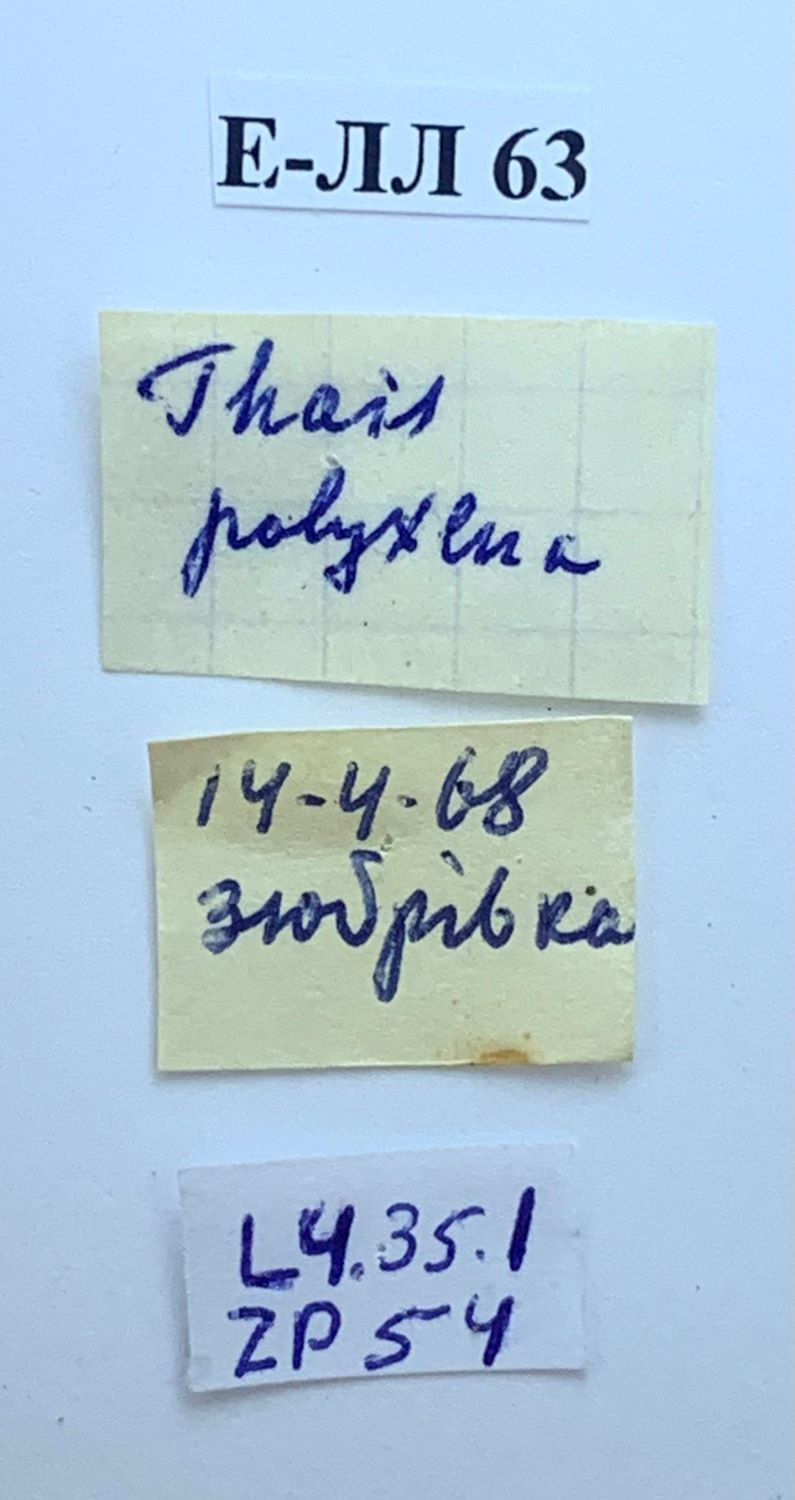 Е-ЛЛ 63
Thais
polyxena
14-4-68
зюбрівка
L4.35.1
ZP 54